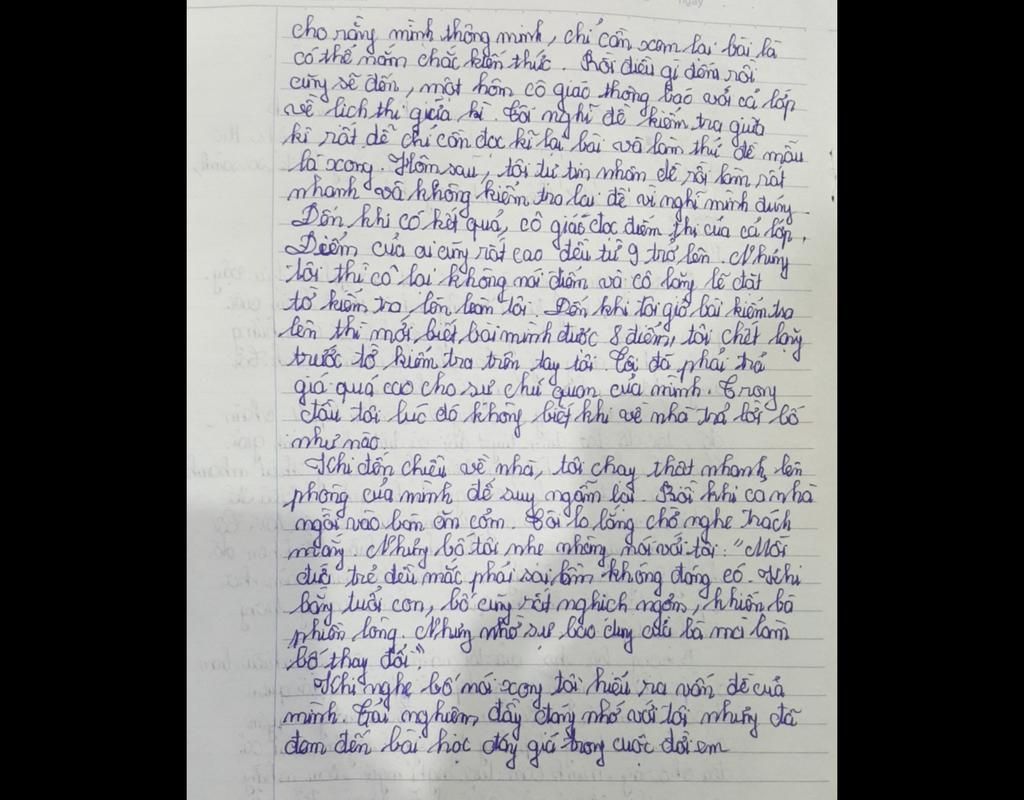 cho rằng mình thông minh, chỉ cần xem lại bài là
có thể nắm chắc kiến thức. Rồi điều gì đến rồi
cũng sẽ đến, một hôm cô giáo thông báo với cả lớp
về lịch thi giữa kì. Tôi nghĩ đề kiểm tra giữa
kì rất dễ chỉ cần đọc kĩ lại bài và làm thử đề mẫu
là xong. Hôm sau, tôi tự tin nhận đề rồi làm rất
nhanh và không kiểm tra lại đề vì nghĩ mình đúng.
Đến khi có kết quả, cô giáo đọc điểm thi của cả lớp.
Điểm của ai cũng rất cao đều từ 9 trở lên. Nhưng
tôi thì cô lại không nói điểm và cô lặng lẽ đặt
tờ kiểm tra lên bàn tôi. Đến khi tôi giở bài kiểm tra
lên thì mới biết bài mình được 8 điểm, tôi chết lặng
trước tờ kiểm tra trên tay tôi. Tôi đã phải trả
giá quá cao cho sự chủ quan của mình. Trong
đầu tôi lúc đó không biết khi về nhà trả lời bố
như nào.
Khi đến chiều về nhà, tôi chạy thật nhanh lên
phòng của mình để suy ngẫm lại. Rồi khi cả nhà
ngồi vào bàn ăn cơm. Tôi lo lắng chờ nghe trách
mắng. Nhưng bố tôi nhẹ nhàng nói với tôi: "Mỗi
đứa trẻ đều mắc phải sai lầm không đáng có. Khi
bằng tuổi con, bố cũng rất nghịch ngợm, khiến bà
phiền lòng. Nhưng nhờ sự bao dung của bà mà làm
bố thay đổi."
Khi nghe bố nói xong tôi hiểu ra vấn đề của
mình. Trải nghiệm đầy đáng nhớ với tôi nhưng đã
đem đến bài học đáng giá trong cuộc đời em